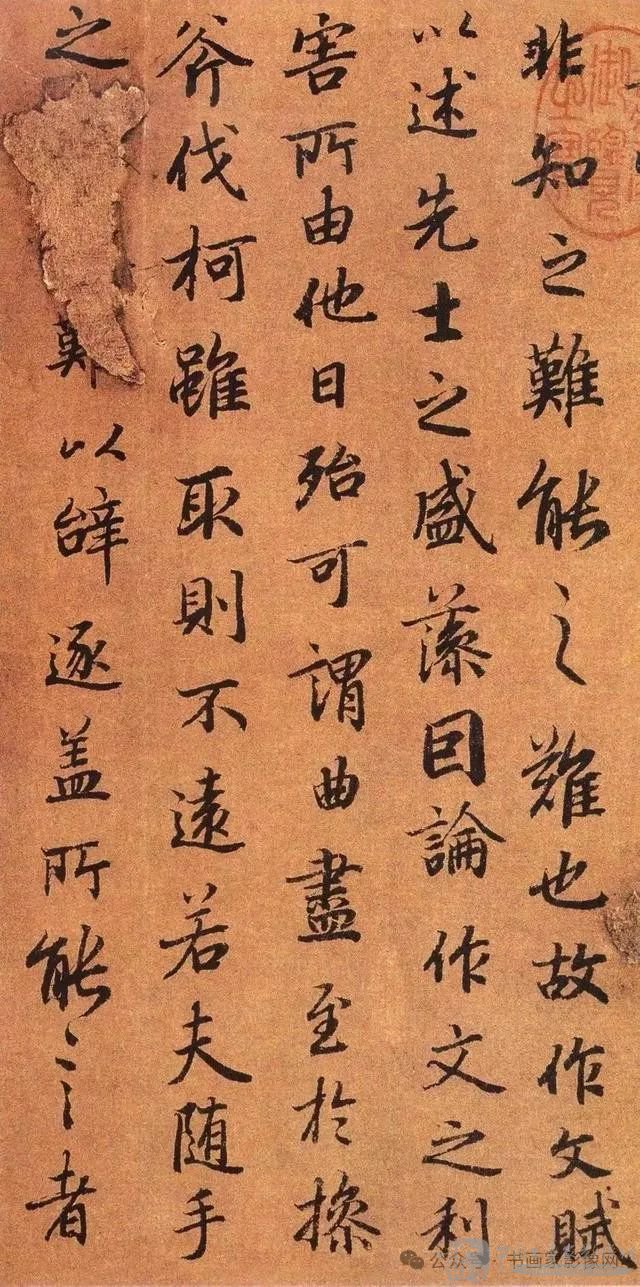 非知之難能之難也故作文賦
以述先士之盛藻因論作文之利
害所由他日殆可謂曲盡至於操
斧伐柯雖取則不遠若夫随手
之以辭逐盖所能言者
公众号·书画家影像网